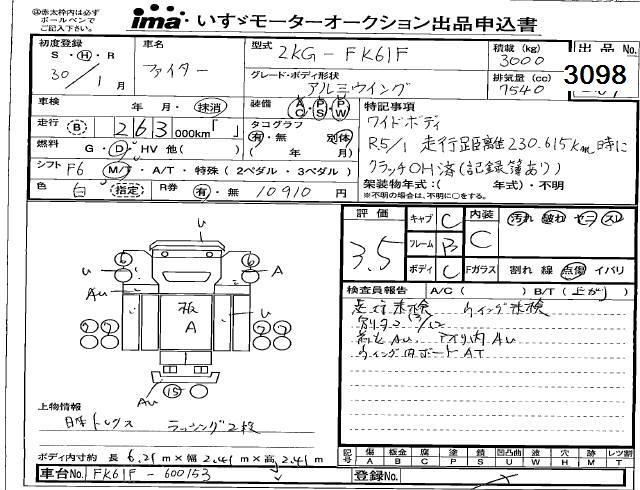 ◎赤太枠内は必ず
ボールペンで
ご記入下さい。
ima いすゞモーターオークション出品申込書
初度登録
S・H・R
30年 1月
車名
ファイター
型式
2KG-FK61F
グレード・ボディ形状
アルミウイング
積載(kg)
3000
排気量(cc)
7540
出品No.
3098
車検
年 月・抹消
装備
AC PS PW
特記事項
ワイドボディ
R5/1 走行距離230.615km時に
クラッチOH済(記録簿あり)
架装物年式:( 年式)・不明
※不明の場合は、不明に○をする。
走行 B 263 000km「 」
タコグラフ
有・無 別体
( 年 月)
燃料 G・D・HV 他( )
シフト F6 M/T・A/T・特殊(2ペダル・3ペダル)
色 白 指定 R券 有・無 10910円
評価
3.5
キャブ C
フレーム B
ボディ C
内装
C
汚れ 破れ ヤニ スレ
Fガラス 割れ 線 点傷 イバリ
検査員報告 A/C( ) B/T(上がり)
走行未検 ウイング未検
AU
ウイング内ボードAT
U
6 6
U A
AU
U
板
A
AU
15
上物情報
日本トレクス ラッシング2段
ボディ内寸約 長6.21m×幅2.41m×高2.41m
記号 傷 A 板金 B 腐 C 塗 P 錆 S 凹凸曲 U 波 W 穴 H 跡 M レツ割 T
車台No. FK61F-600153
登録No.